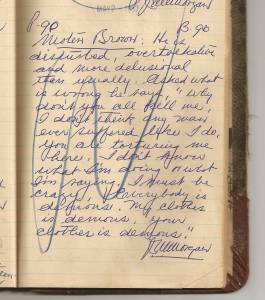 J. M. Morgan
P-90 B-90
Mister Brown: He is
disturbed, overtalkative
and more delusional
than usually. Asked what
is wrong he says, "Why
don't you all kill me,
I don't think any man
ever suffered like I do,
you all torturing me
here. I don't know
what I'm doing or what
I'm saying, I must be
crazy. Everybody is
demons. My clothes
is demons. Your
clothes is demons."
J M Morgan